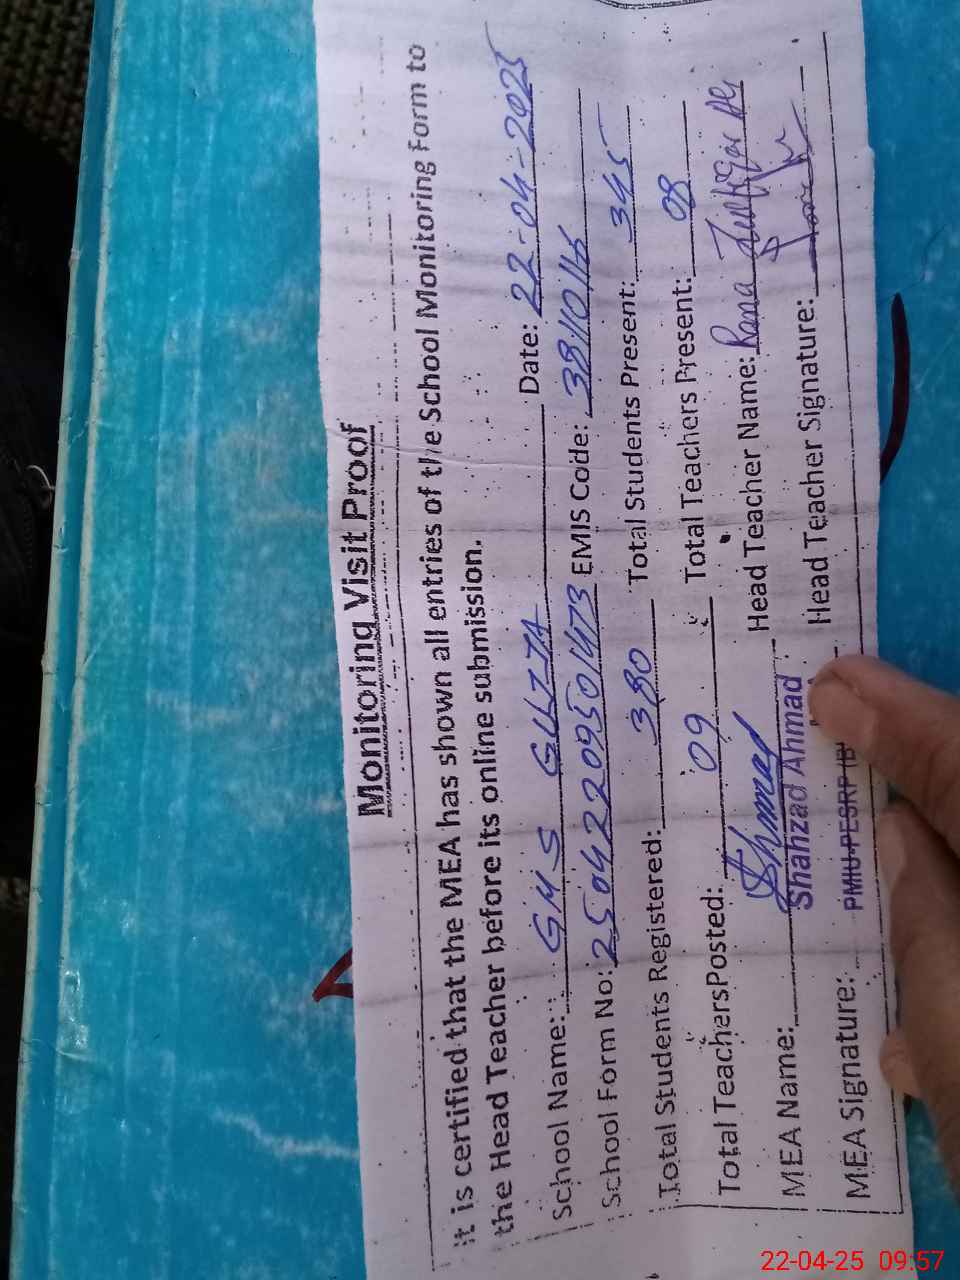 Monitoring Visit Proof
it is certified that the MEA has shown all entries of the School Monitoring Form to
the Head Teacher before its online submission.
School Name: GMS GUJJA Date: 22-04-2025
School Form No: 25042209501473 EMIS Code: 38110116
Total Students Registered: 380 Total Students Present: 345
Total TeachersPosted: 09 Total Teachers Present: 08
MEA Name: Shahzad Ahmad Head Teacher Name: Rana Zulfiqar Ali
MEA Signature: PMIU-PESRP Head Teacher Signature:
22-04-25 09:57